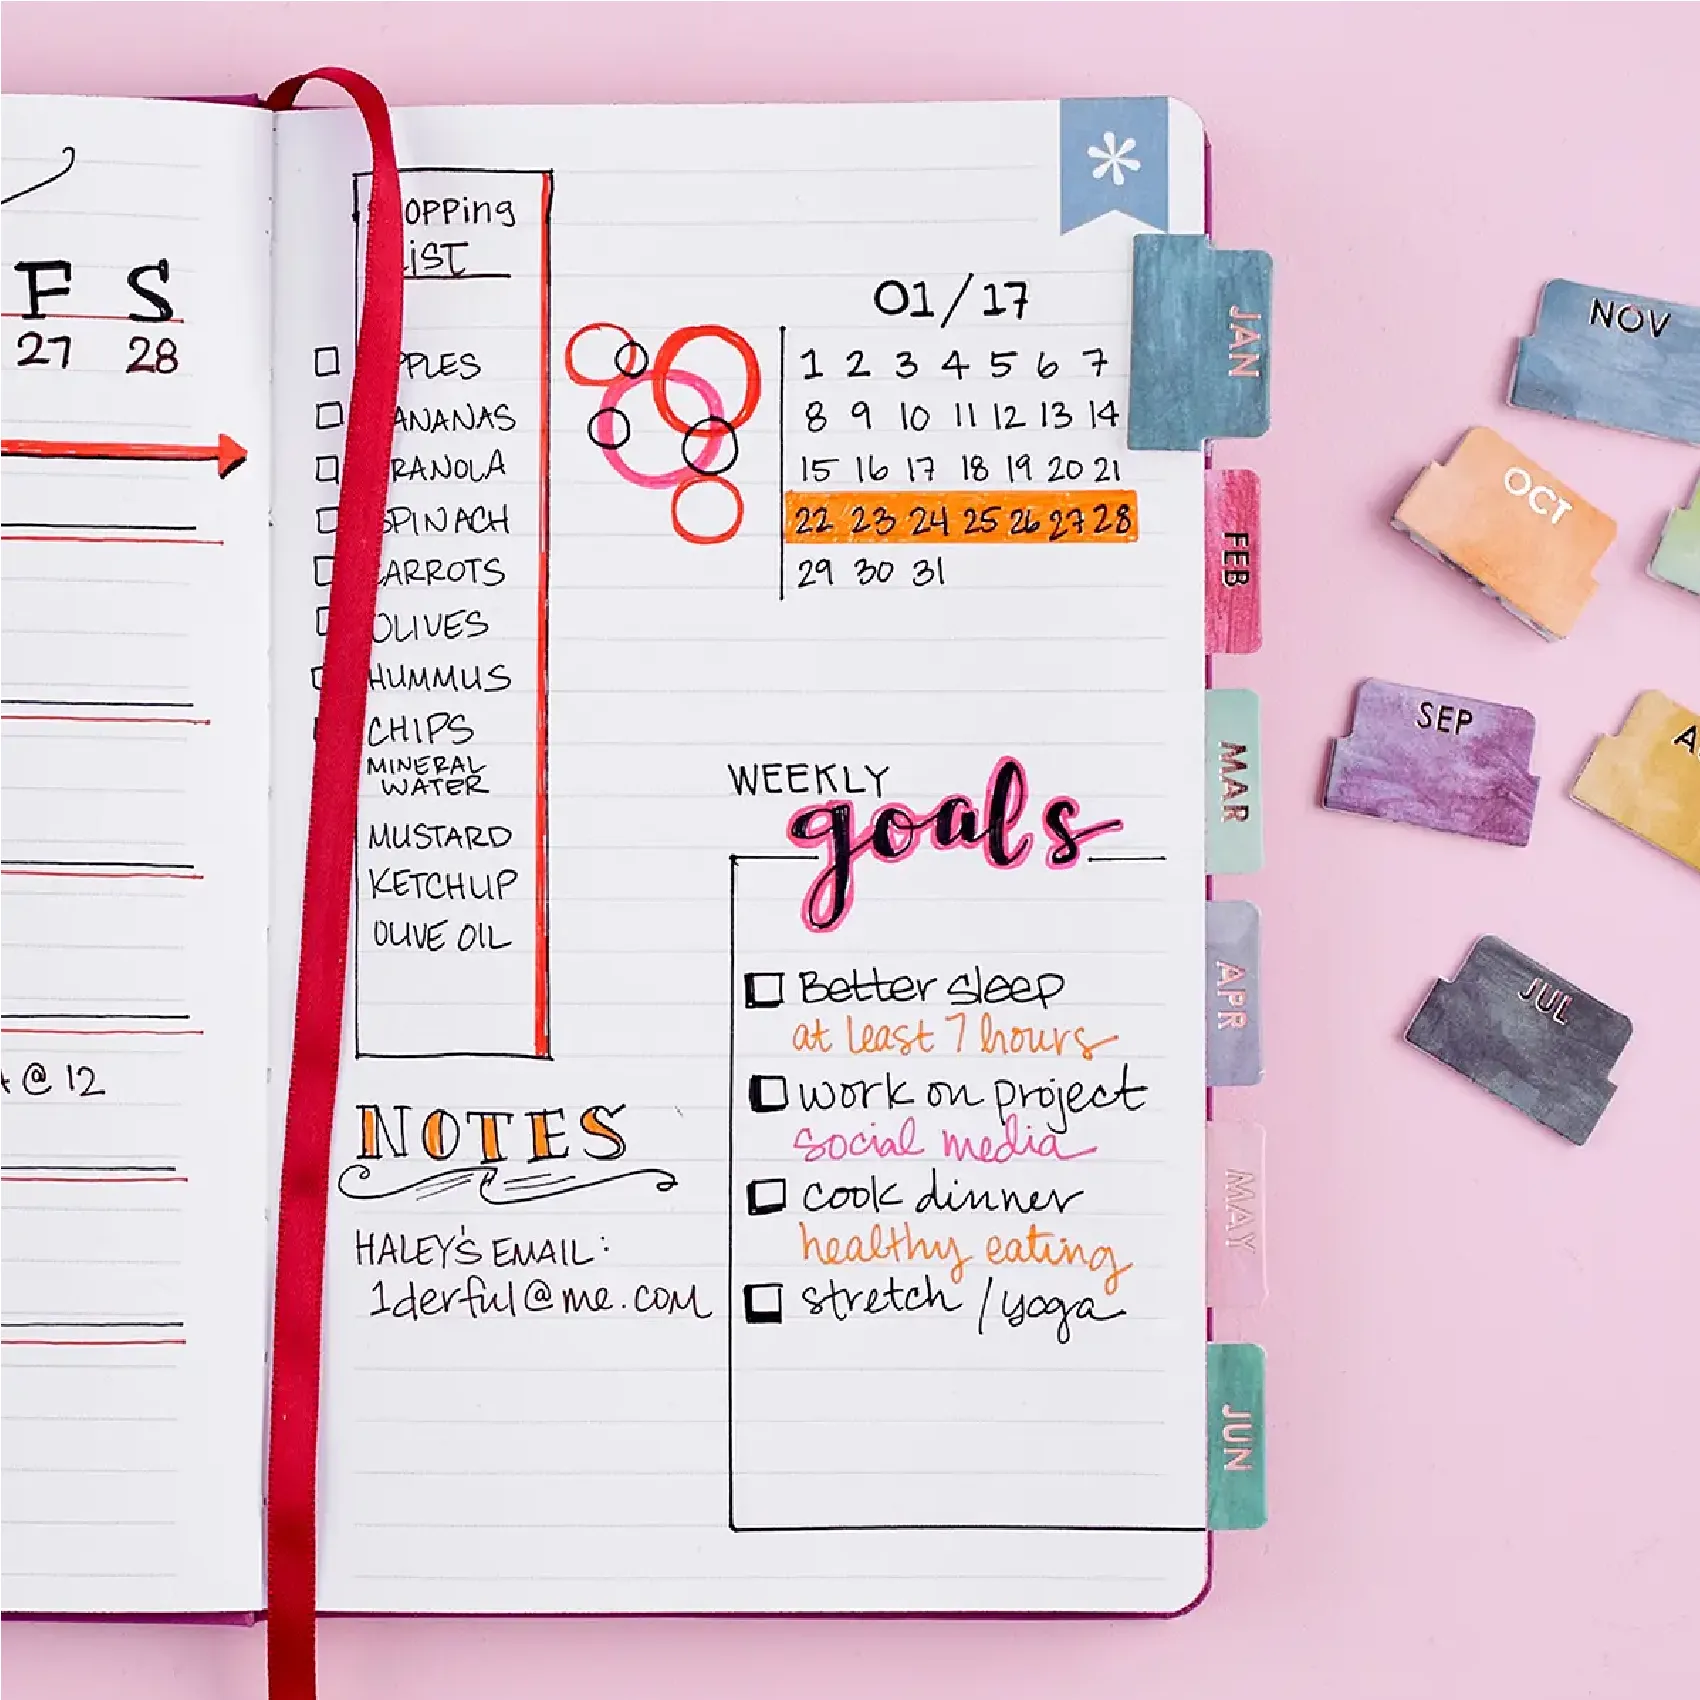 F S
27 28
@ 12
opping
ist
PPLES
ANANAS
RANOLA
SPINACH
ARROTS
OLIVES
HUMMUS
CHIPS
MINERAL
WATER
MUSTARD
KETCHUP
OLIVE OIL
NOTES
HALEY'S EMAIL:
1derful@me.com
01/17
1 2 3 4 5 6 7
8 9 10 11 12 13 14
15 16 17 18 19 20 21
22 23 24 25 26 27 28
29 30 31
WEEKLY
goals
Better sleep
at least 7 hours
work on project
social media
cook dinner
healthy eating
stretch / yoga
JAN
FEB
MAR
APR
MAY
JUN
NOV
OCT
SEP
A
JUL